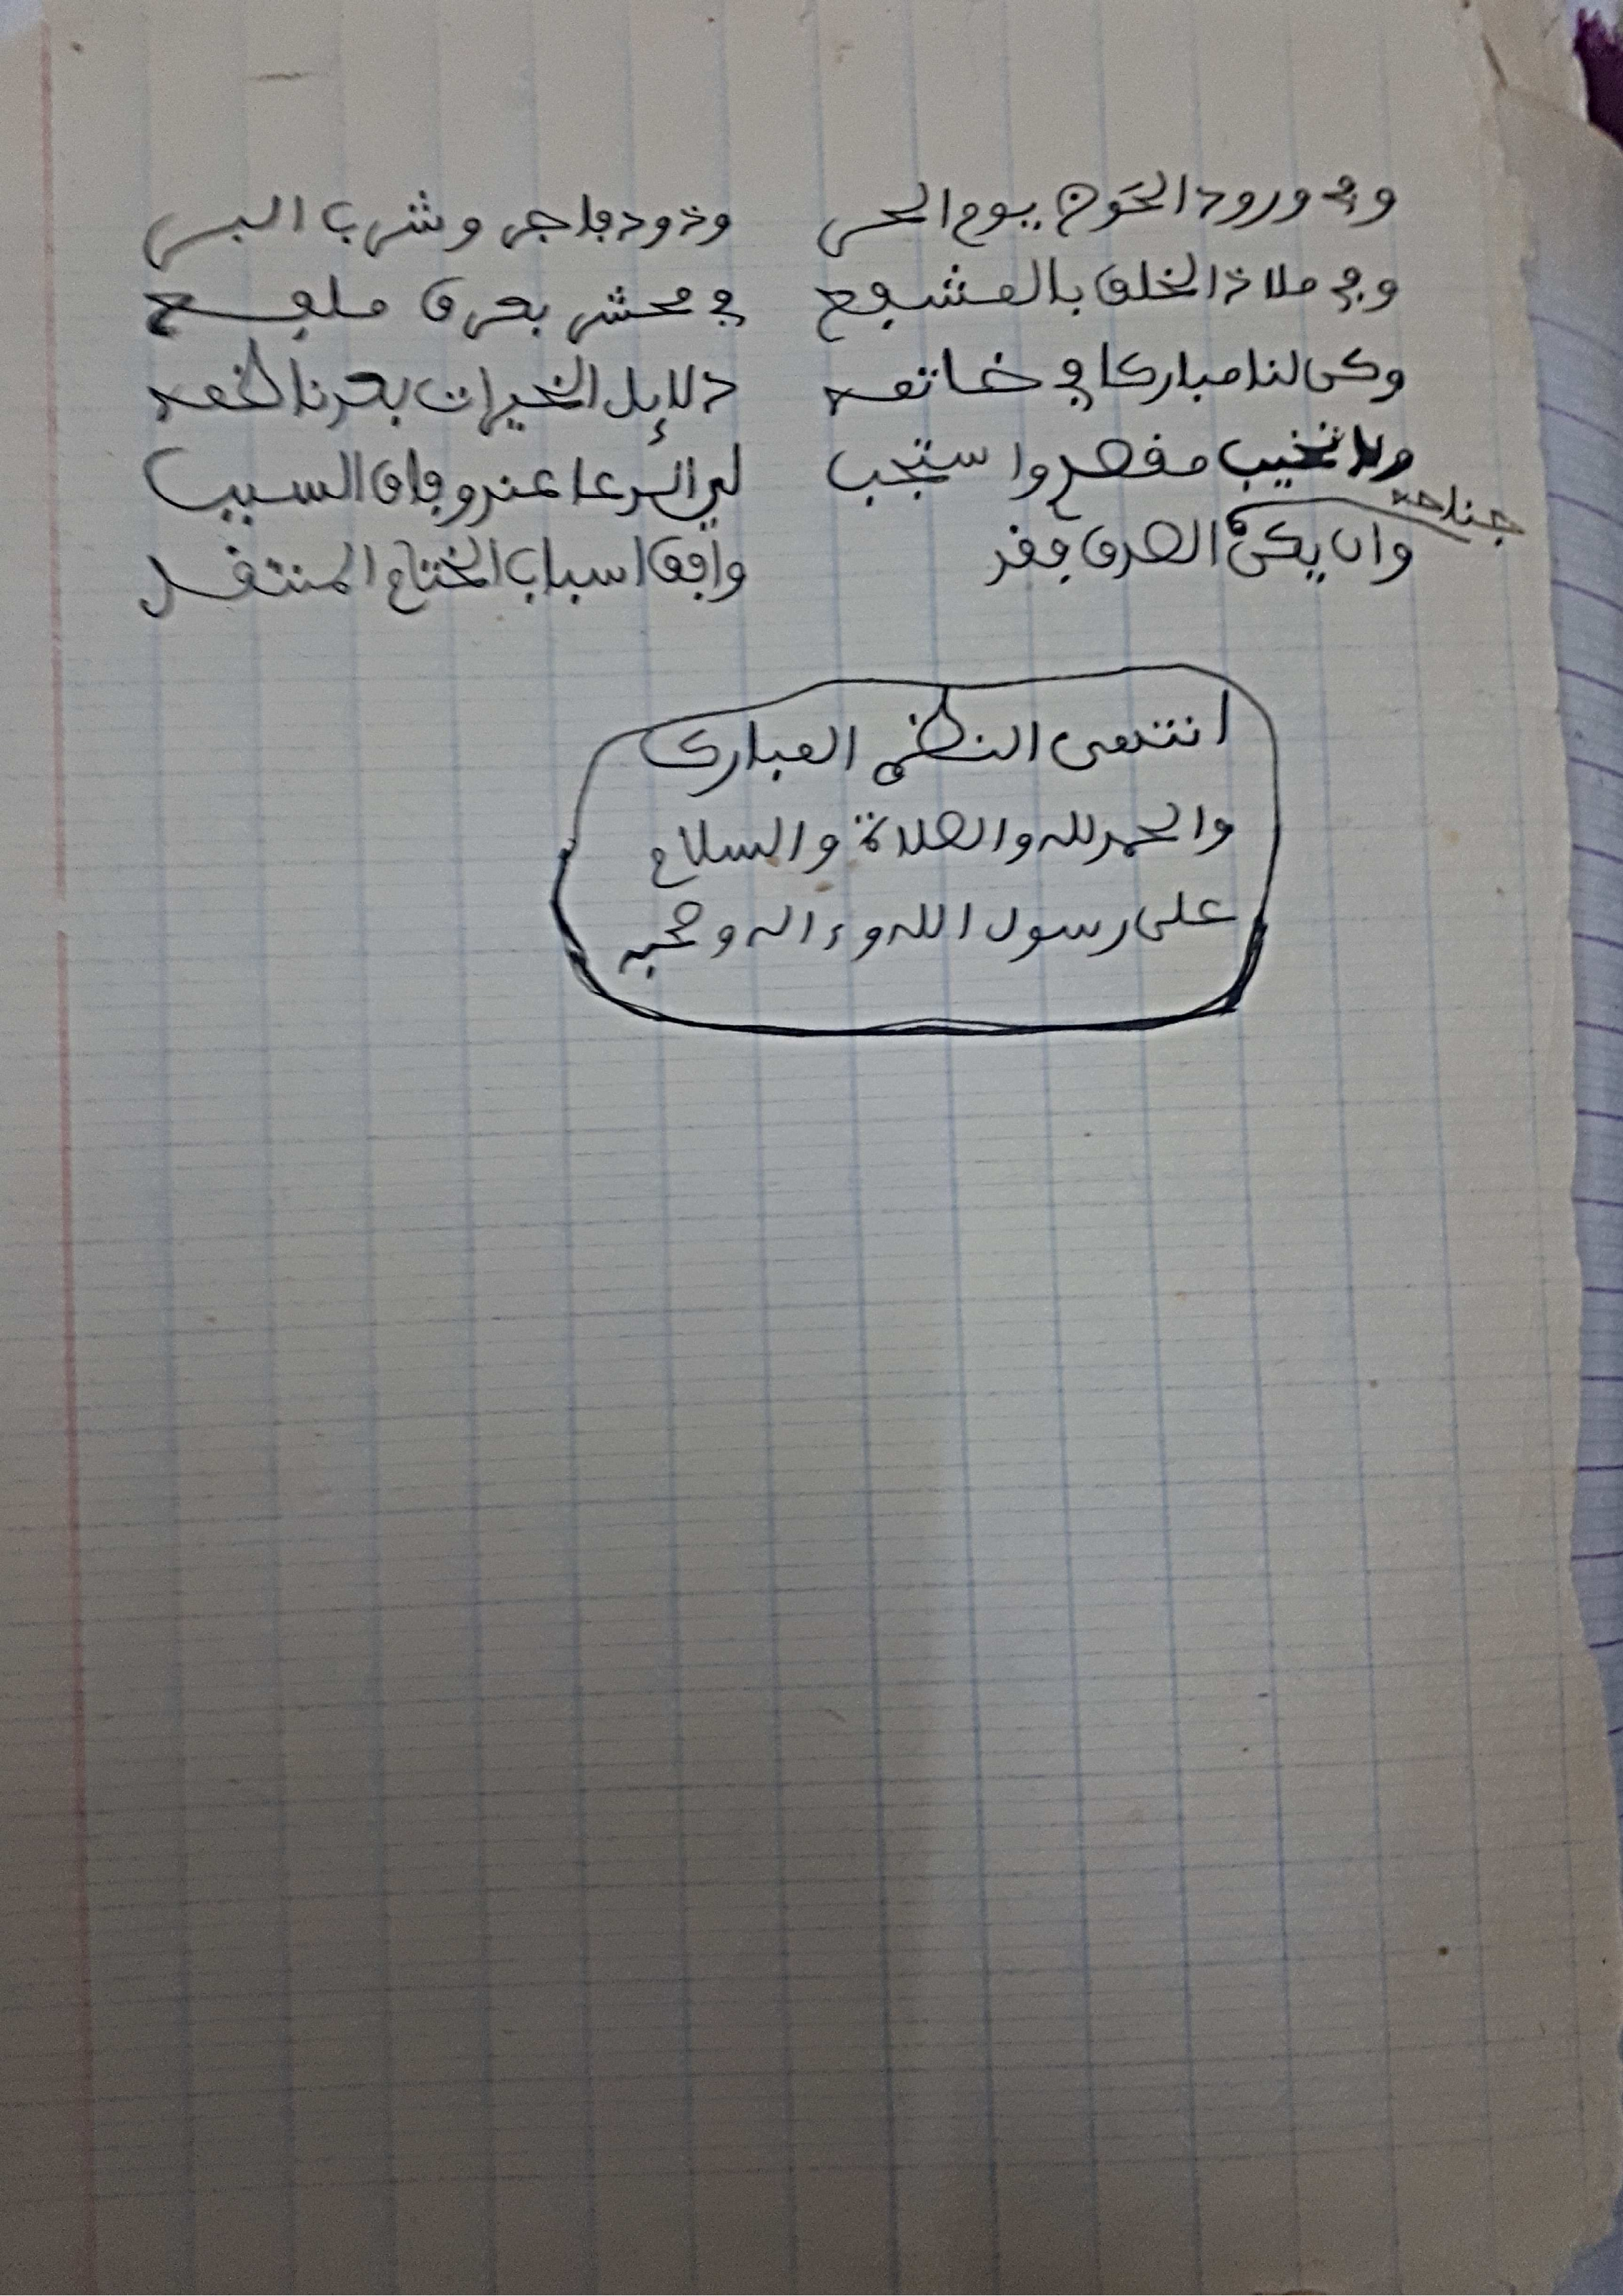 وفي ورود الحَوض يوم الحر وذود فاجر وشرب البر
وفي ملاذ الخلق بالمشفع في محشر بعرق ملفع
وكن لنا مباركا في خاتمه دلائل الخيرات بعدنا لخمه
ولا تخيب مقصدي واستجب لي الدعا عند وفاق السبب
جناحه
وان يكن الصدق فقد وافق اسباب الختام المنتقد
انتهى النظم المبارك
والحمد لله والصلاة والسلام
على رسول الله وءاله وصحبه